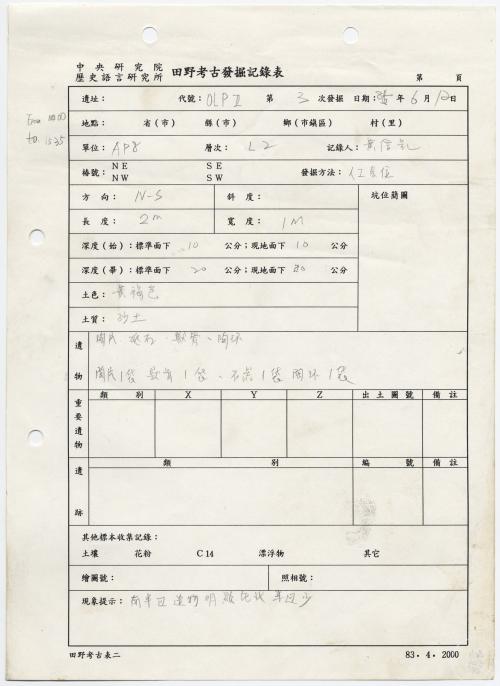 中央研究院
歷史語言研究所 田野考古發掘記錄表
第 頁
遺址： 代號：OLP II 第 3 次發掘 日期： 年 6 月 12 日
From 10:00
to 15:35
地點： 省（市） 縣（市） 鄉（市鎮區） 村（里）
單位：AP8 層次：L2 記錄人：
樁號： NE SE 發掘方法：人工
NW SW
方向：N-S 斜度： 坑位簡圖
長度：2m 寬度：1M
深度（始）：標準面下 10 公分；現地面下 10 公分
深度（畢）：標準面下 20 公分；現地面下 20 公分
土色：黃褐色
土質：砂土
遺物 陶片、石、獸骨、陶环
陶片1袋 獸骨1袋、石 1袋 陶环1袋
重要遺物 類別 X Y Z 出土圖號 備註
遺跡 類 別 編號 備註
其他標本收集記錄：
土壤 花粉 C14 漂浮物 其它
繪圖號： 照相號：
現象提示：南半邊遺物明顯比北半邊少
田野考古表二 83．4．2000